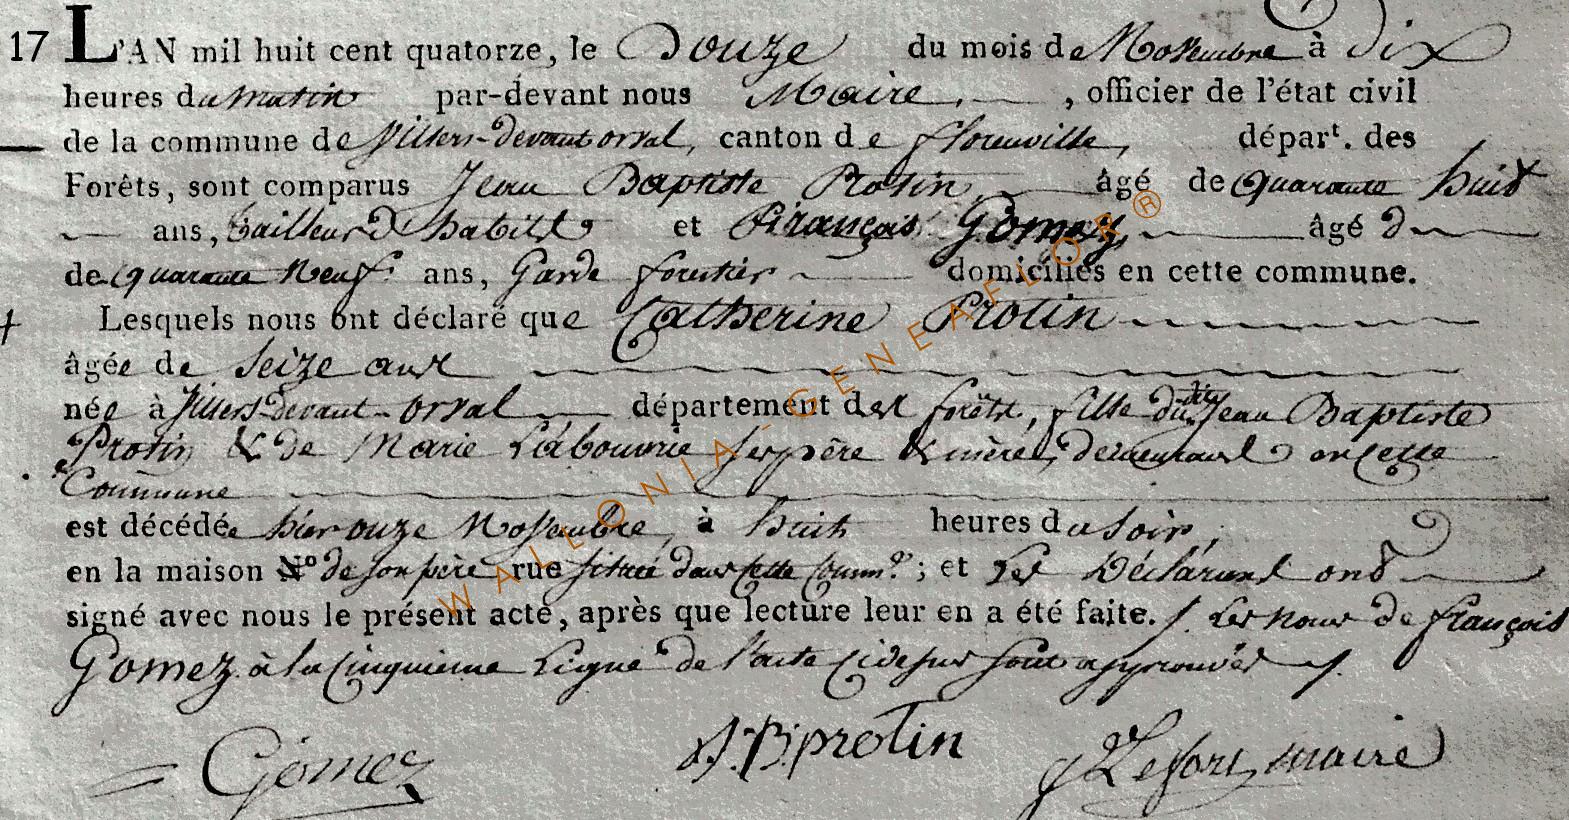 17 L'AN mil huit cent quatorze, le Douze du mois de Novembre à dix
heures du matin par-devant nous Maire, officier de l'état civil
de la commune de Villers-devant orval, canton de florenville, départ. des
Forêts, sont comparus Jean Baptiste Protin âgé de quarante huit
ans, tailleur d'habits et François Gomez âgé d
de quarante Neuf ans, Garde forestier domiciliés en cette commune.
Lesquels nous ont déclaré que Catherine Protin
âgée de Seize ans
née à Villers-devant-orval département des forêts, fille du dit Jean Baptiste
Protin & de Marie Labouverie ses père & mère, demeurant en cette
Commune
est décédée hier onze Novembre, à huit heures du soir,
en la maison N° de son père rue située dans cette Comm.e ; et Les Déclarans ont
signé avec nous le présent acte, après que lecture leur en a été faite. /. Les noms de françois
Gomez à la Cinquieme Ligne de l'acte Cidessus sont approuvés /.
Gomez J.B. protin Lefort maire
WALLONIA-GENEAFLOR ®